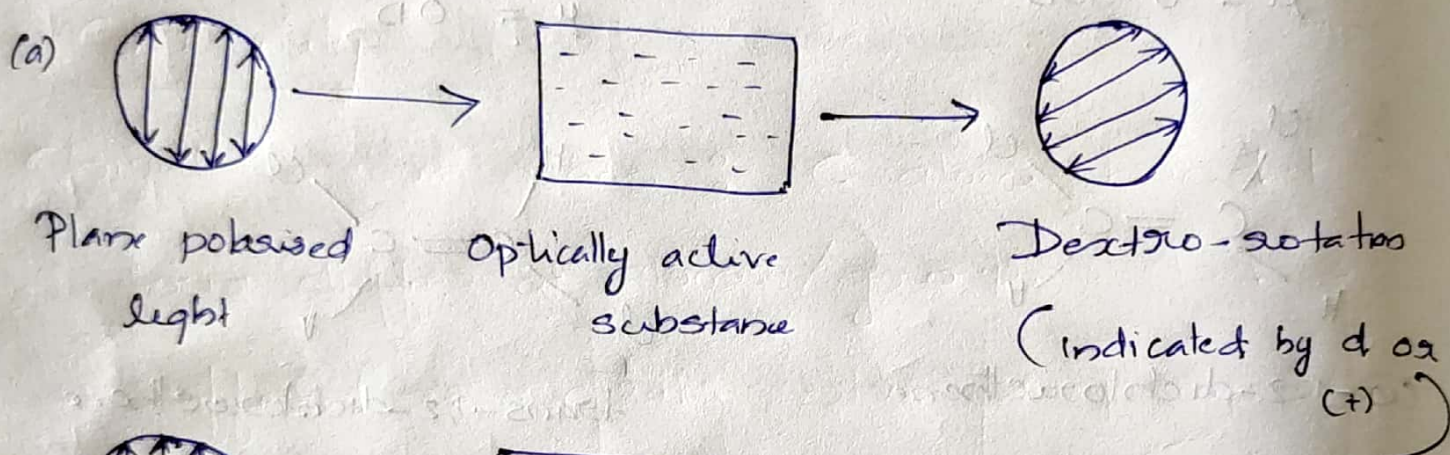 (a)
Plane polarised light
Optically active substance
Dextro-rotation
(indicated by d or (+))